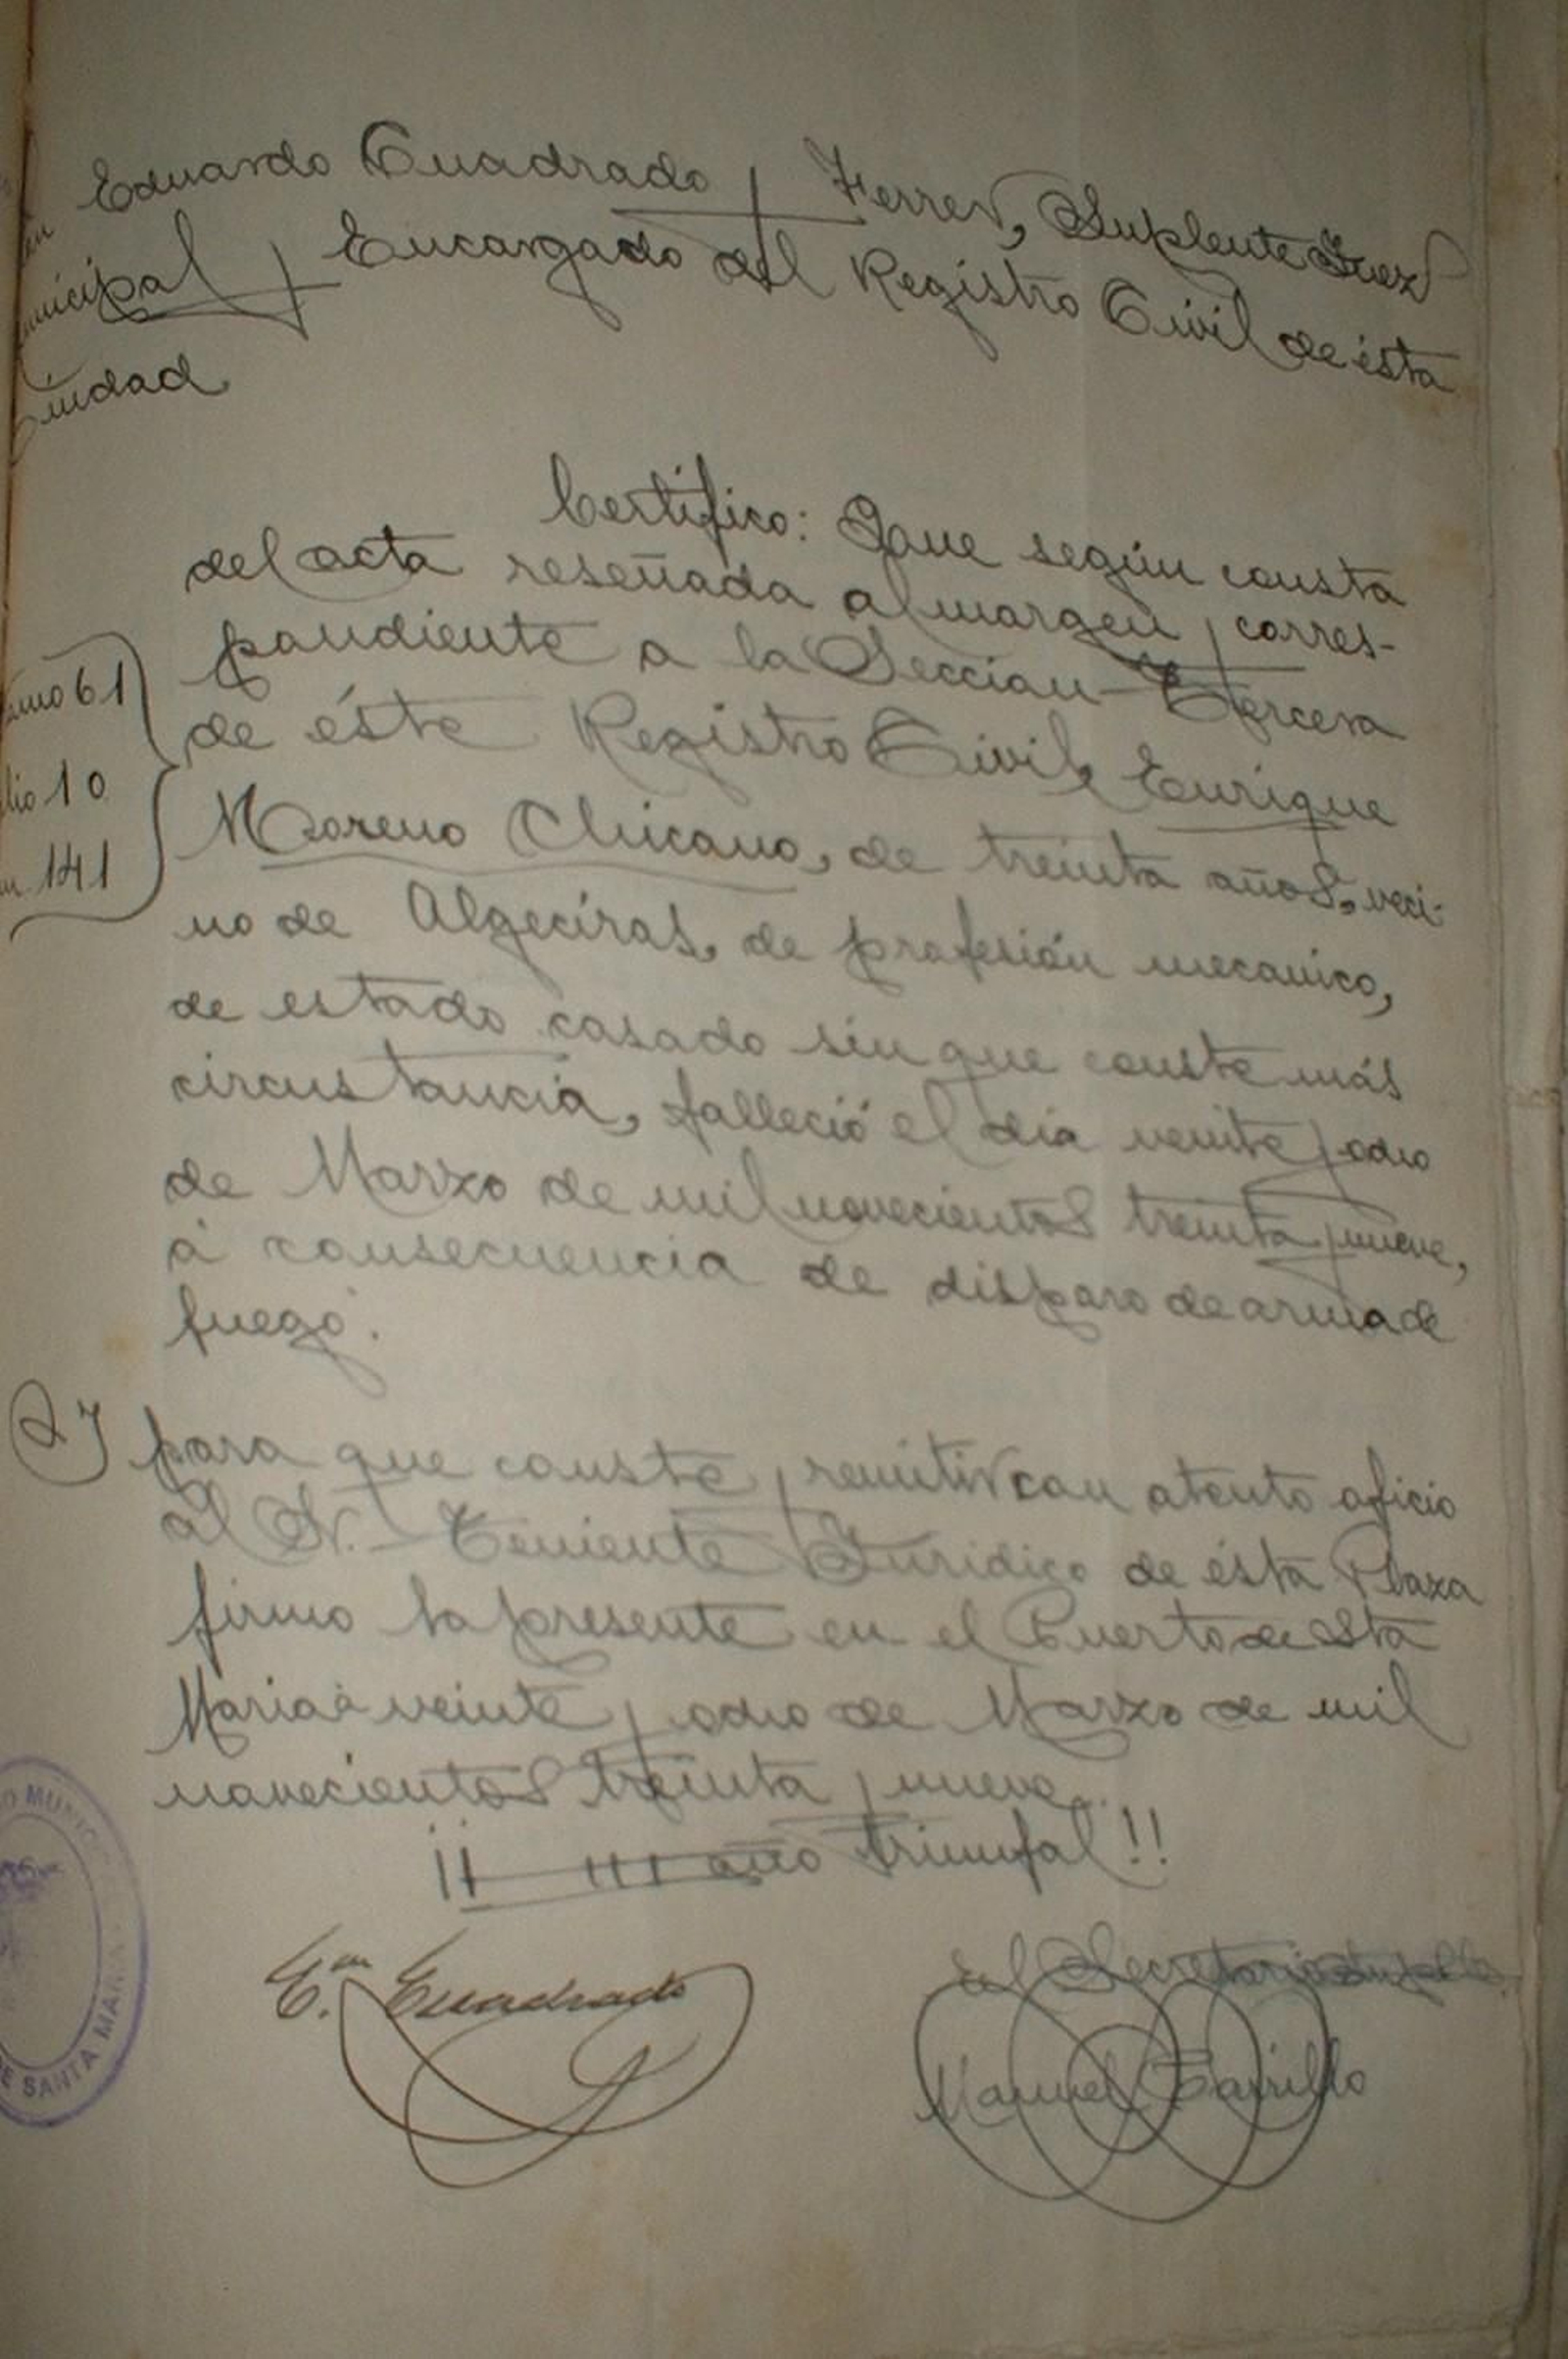 Eduardo Cuadrado y Ferrer, Suplente Juez
nicipal y Encargado del Registro Civil de ésta
Ciudad
Certifico: Que según consta
del acta reseñada al margen y corres-
pondiente a la Sección Tercera
de éste Registro Civil, Enrique
Moreno Chicano, de treinta años, veci-
no de Algeciras, de profesión mecanico,
de estado casado sin que conste más
circustancia, falleció el dia veinte y ocho
de Marzo de mil novecientos treinta y nueve,
á consecuencia de disparo de arma de
fuego.
omo 61
lio 10
141
Y para que conste y remitir con atento oficio
al Sr. Teniente Juridico de ésta Plaza
firmo la presente en el Puerto de Sta
Maria á veinte y ocho de Marzo de mil
novecientos treinta y nueve.
¡¡ III año triunfal!!
E. Cuadrado
El Secretario
Manuel Carrillo
O MUNIC
DE SANTA MARIA